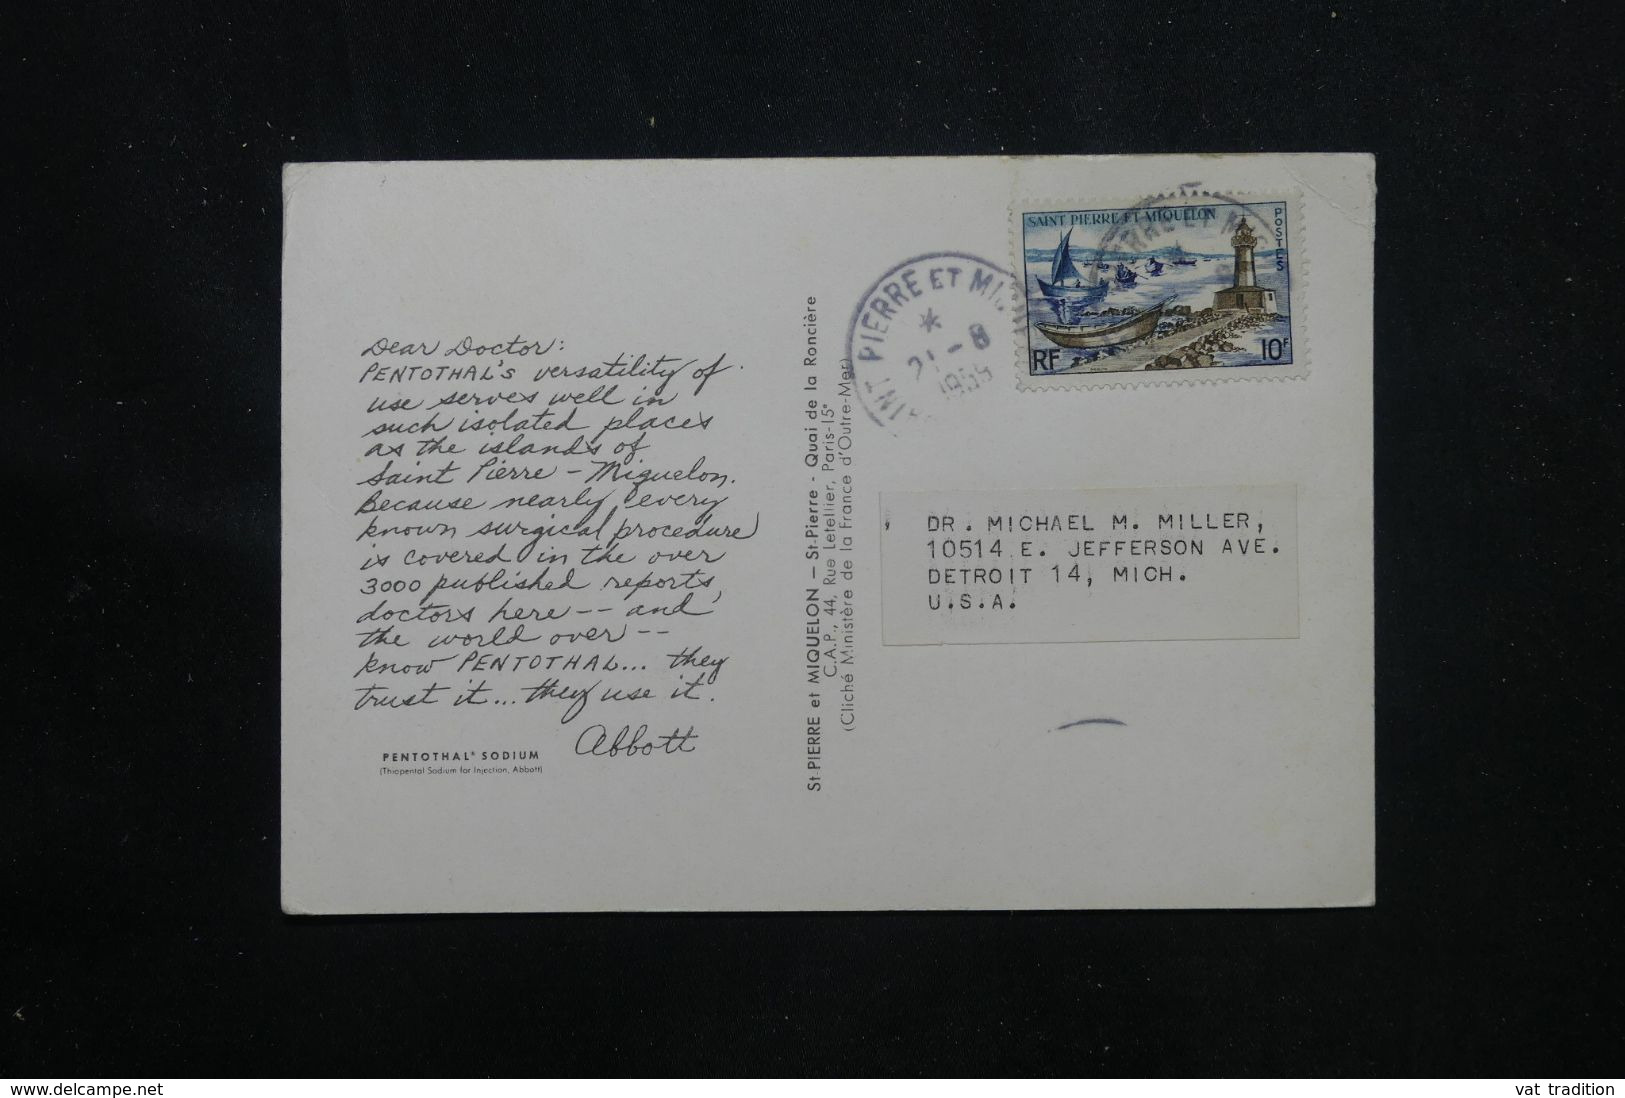 Dear Doctor:
PENTOTHAL'S versatility of
use serves well in
such isolated places
as the islands of
Saint Pierre - Miquelon.
Because nearly every
known surgical procedure
is covered in the over
3000 published reports,
doctors here -- and
the world over --
know PENTOTHAL... they
trust it... they use it.
Abbott
PENTOTHAL® SODIUM
(Thiopental Sodium for Injection, Abbott)
St-PIERRE et MIQUELON — St-Pierre - Quai de la Roncière
C.A.P., 44, Rue Letellier, Paris-15e
(Cliché Ministère de la France d'Outre-Mer)
INT PIERRE ET MI
*
21-8
SAINT PIERRE ET MIQUELON
POSTES
RF
10F
DR. MICHAEL M. MILLER,
10514 E. JEFFERSON AVE.
DETROIT 14, MICH.
U.S.A.
www.delcampe.net
vat tradition